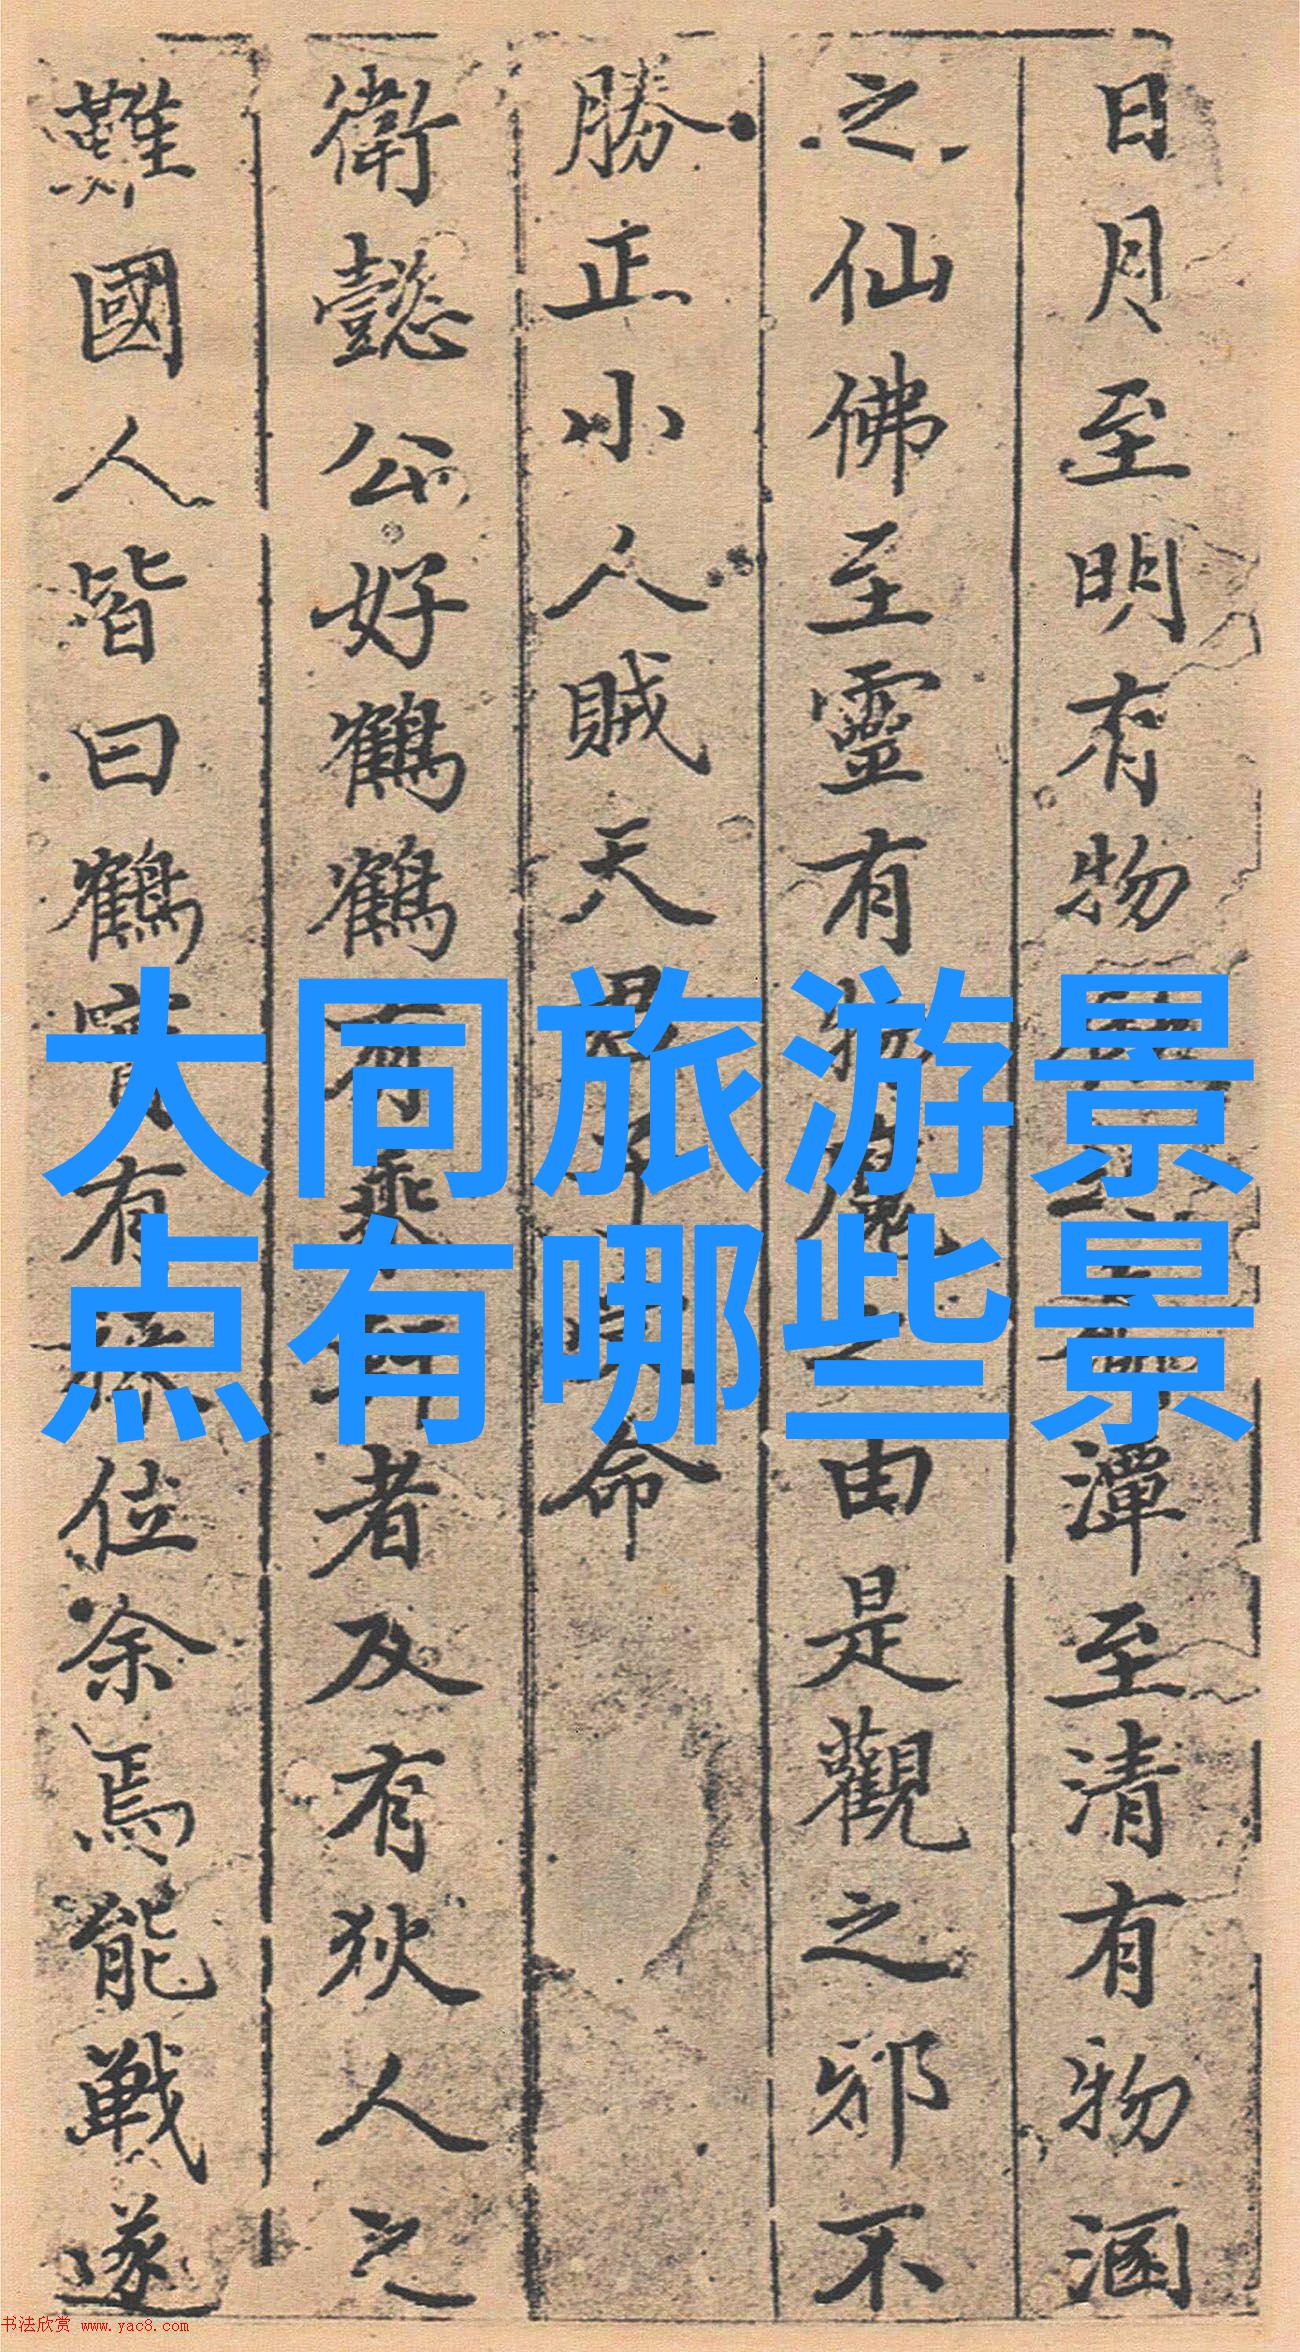 日月至明有物
潭至清有物涵
之仙佛至靈有
由是觀之邪不
勝正小人賊天
命
衛懿公好鶴鶴有乘
者及有狄人之
難國人皆曰鶴實有
位余焉能戰遂
大同旅游景
点有哪些景
书法欣赏 www.yac8.com